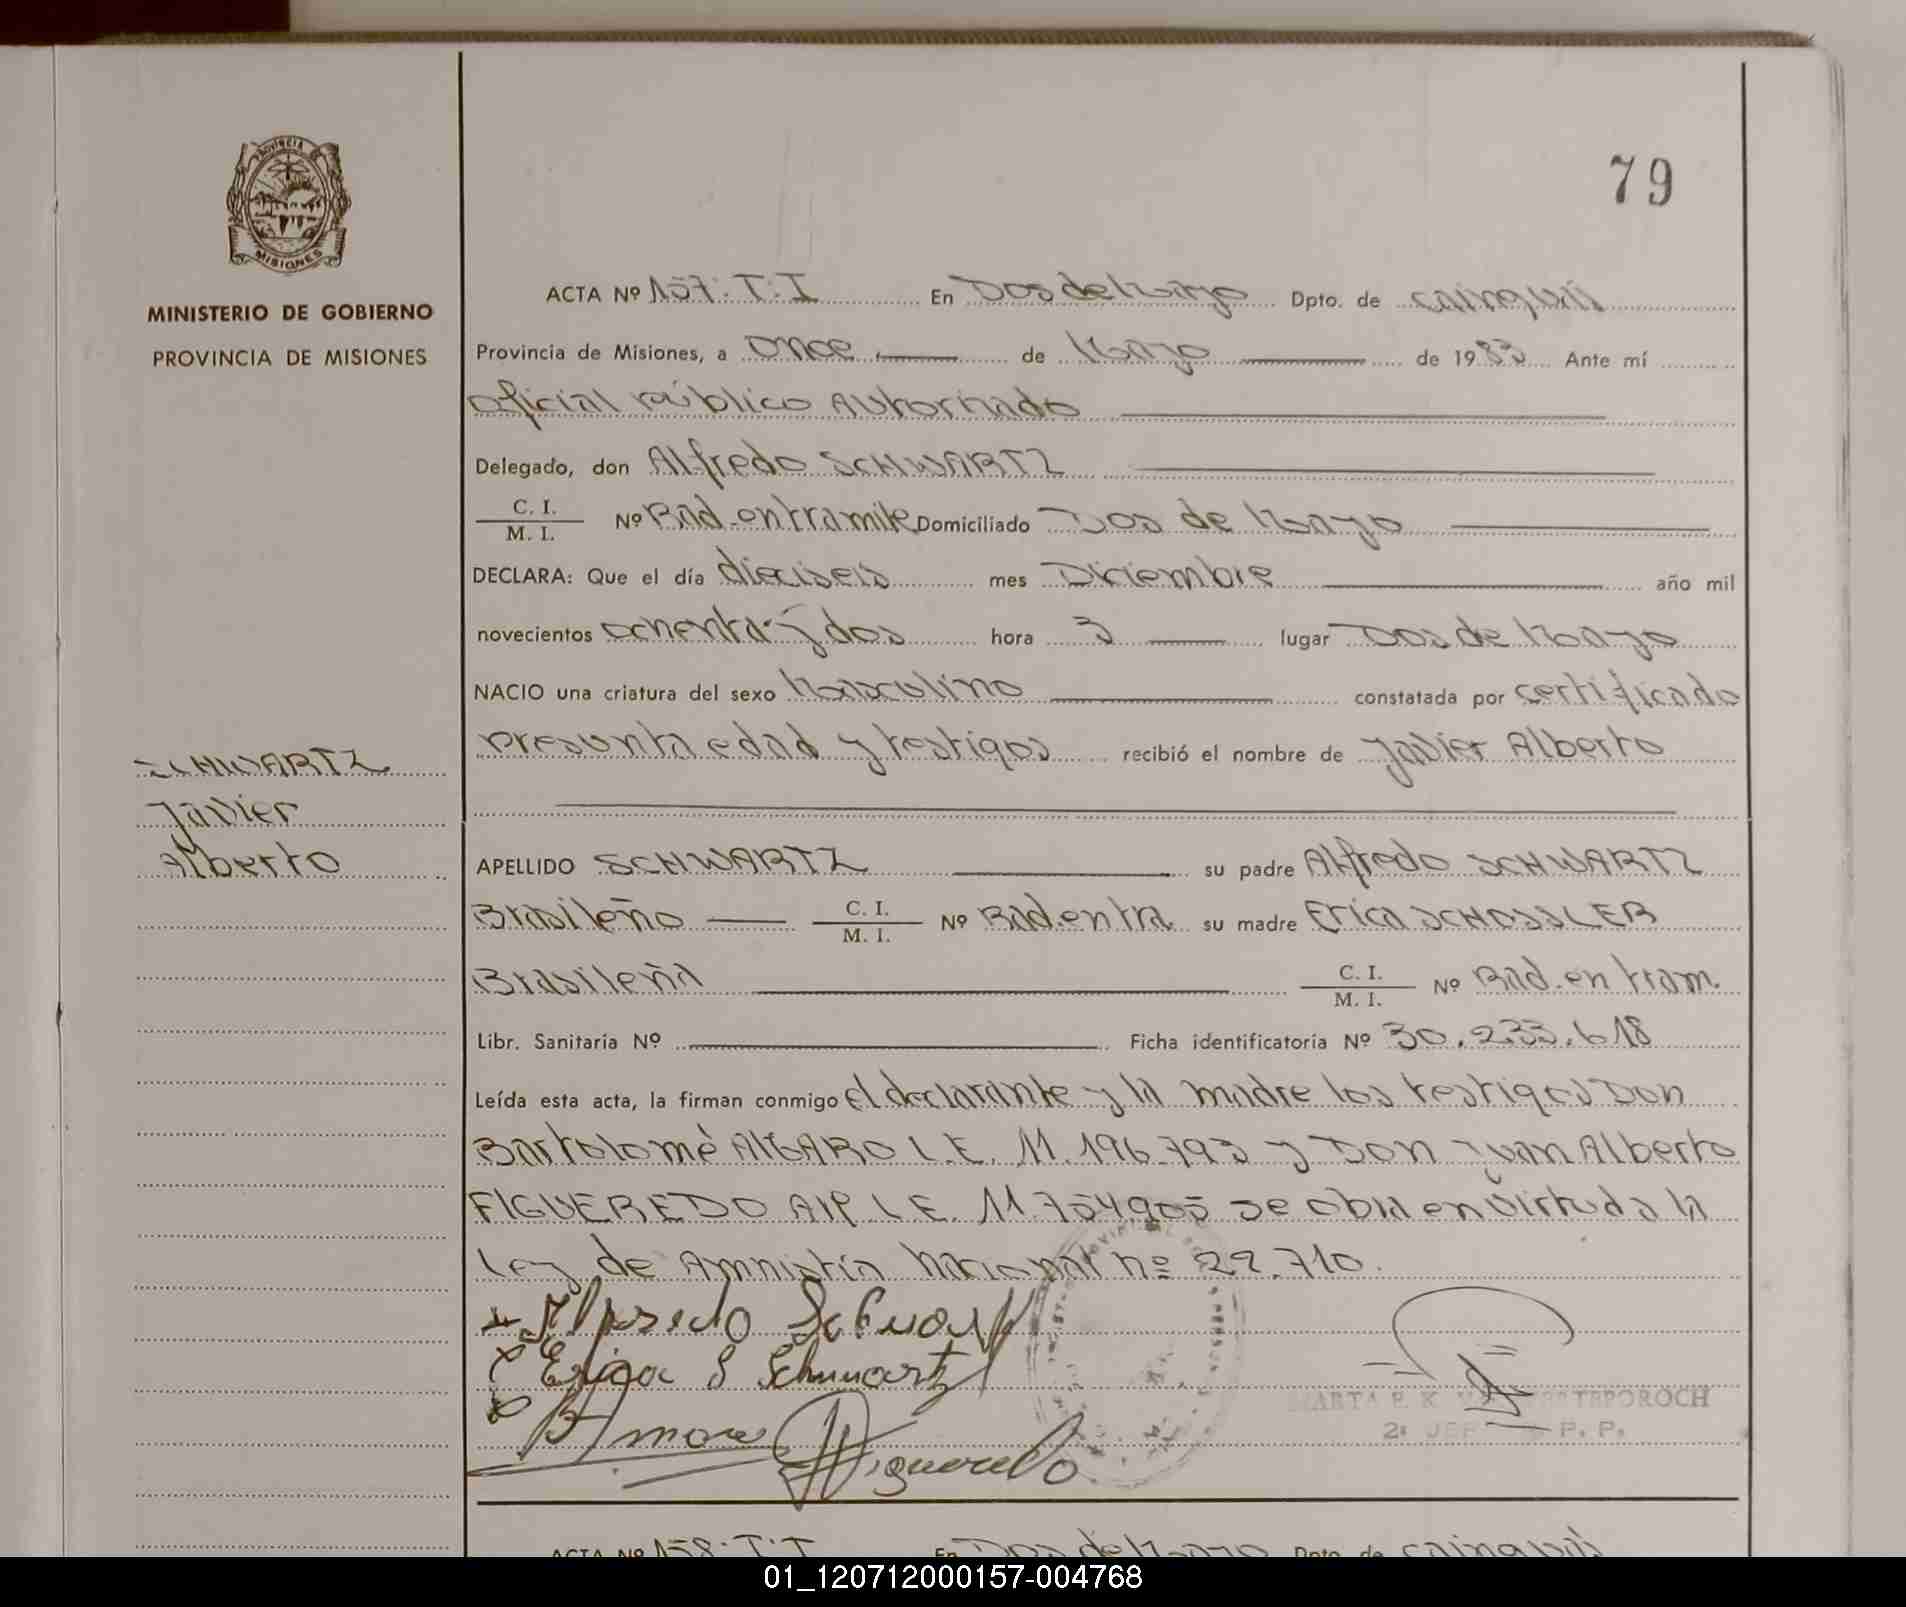 79
PROVINCIA DE
MISIONES
MINISTERIO DE GOBIERNO
PROVINCIA DE MISIONES
SCHWARTZ
Javier
Alberto
ACTA Nº 157. T. I En Dos de Mayo Dpto. de cainguás
Provincia de Misiones, a once de Mayo de 1983 Ante mí
oficial Público Autorizado
Delegado, don Alfredo SCHWARTZ
C. I.
M. I. Nº Rad. entramite Domiciliado Dos de Mayo
DECLARA: Que el día dieciseis mes Diciembre año mil
novecientos ochenta y dos hora 3 lugar Dos de Mayo
NACIO una criatura del sexo Masculino constatada por certificado
presunta edad y testigos recibió el nombre de Javier Alberto
APELLIDO SCHWARTZ su padre Alfredo SCHWARTZ
Brasileño C. I. M. I. Nº Rad. entra su madre Erica SCHOSSLER
Brasileña C. I. M. I. Nº Rad. en tram.
Libr. Sanitaría Nº Ficha identificatoria Nº 30.233.618
Leída esta acta, la firman conmigo el declarante y la madre los testigos Don
Bartolomé L.E. 11.196.793 y Don Juan Alberto
FIGUEREDO L.E. 11.754905 se obra en virtud a la
Ley de Amnistía Nacional nº 22.710.
Erica S Schwartz
Figueredo
ACTA Nº 158. T. I En Dos de Mayo Dpto. de cainguás
01_120712000157-004768